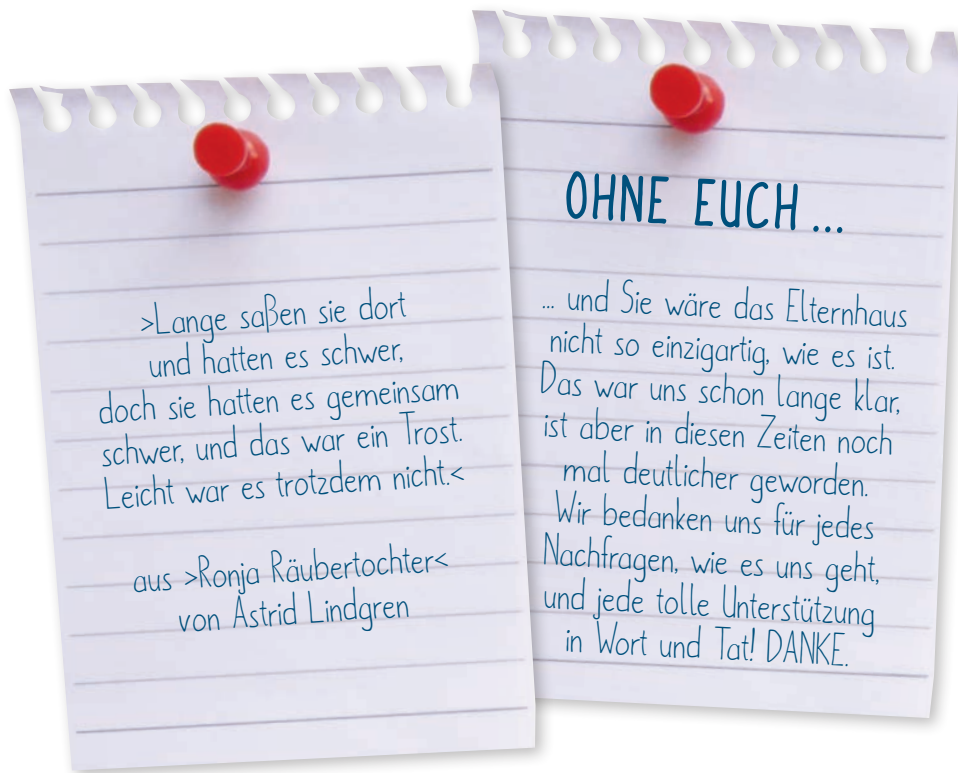 >Lange saßen sie dort
und hatten es schwer,
doch sie hatten es gemeinsam
schwer, und das war ein Trost.
Leicht war es trotzdem nicht.<
aus >Ronja Räubertochter<
von Astrid Lindgren
OHNE EUCH ...
... und Sie wäre das Elternhaus
nicht so einzigartig, wie es ist.
Das war uns schon lange klar,
ist aber in diesen Zeiten noch
mal deutlicher geworden.
Wir bedanken uns für jedes
Nachfragen, wie es uns geht,
und jede tolle Unterstützung
in Wort und Tat! DANKE.